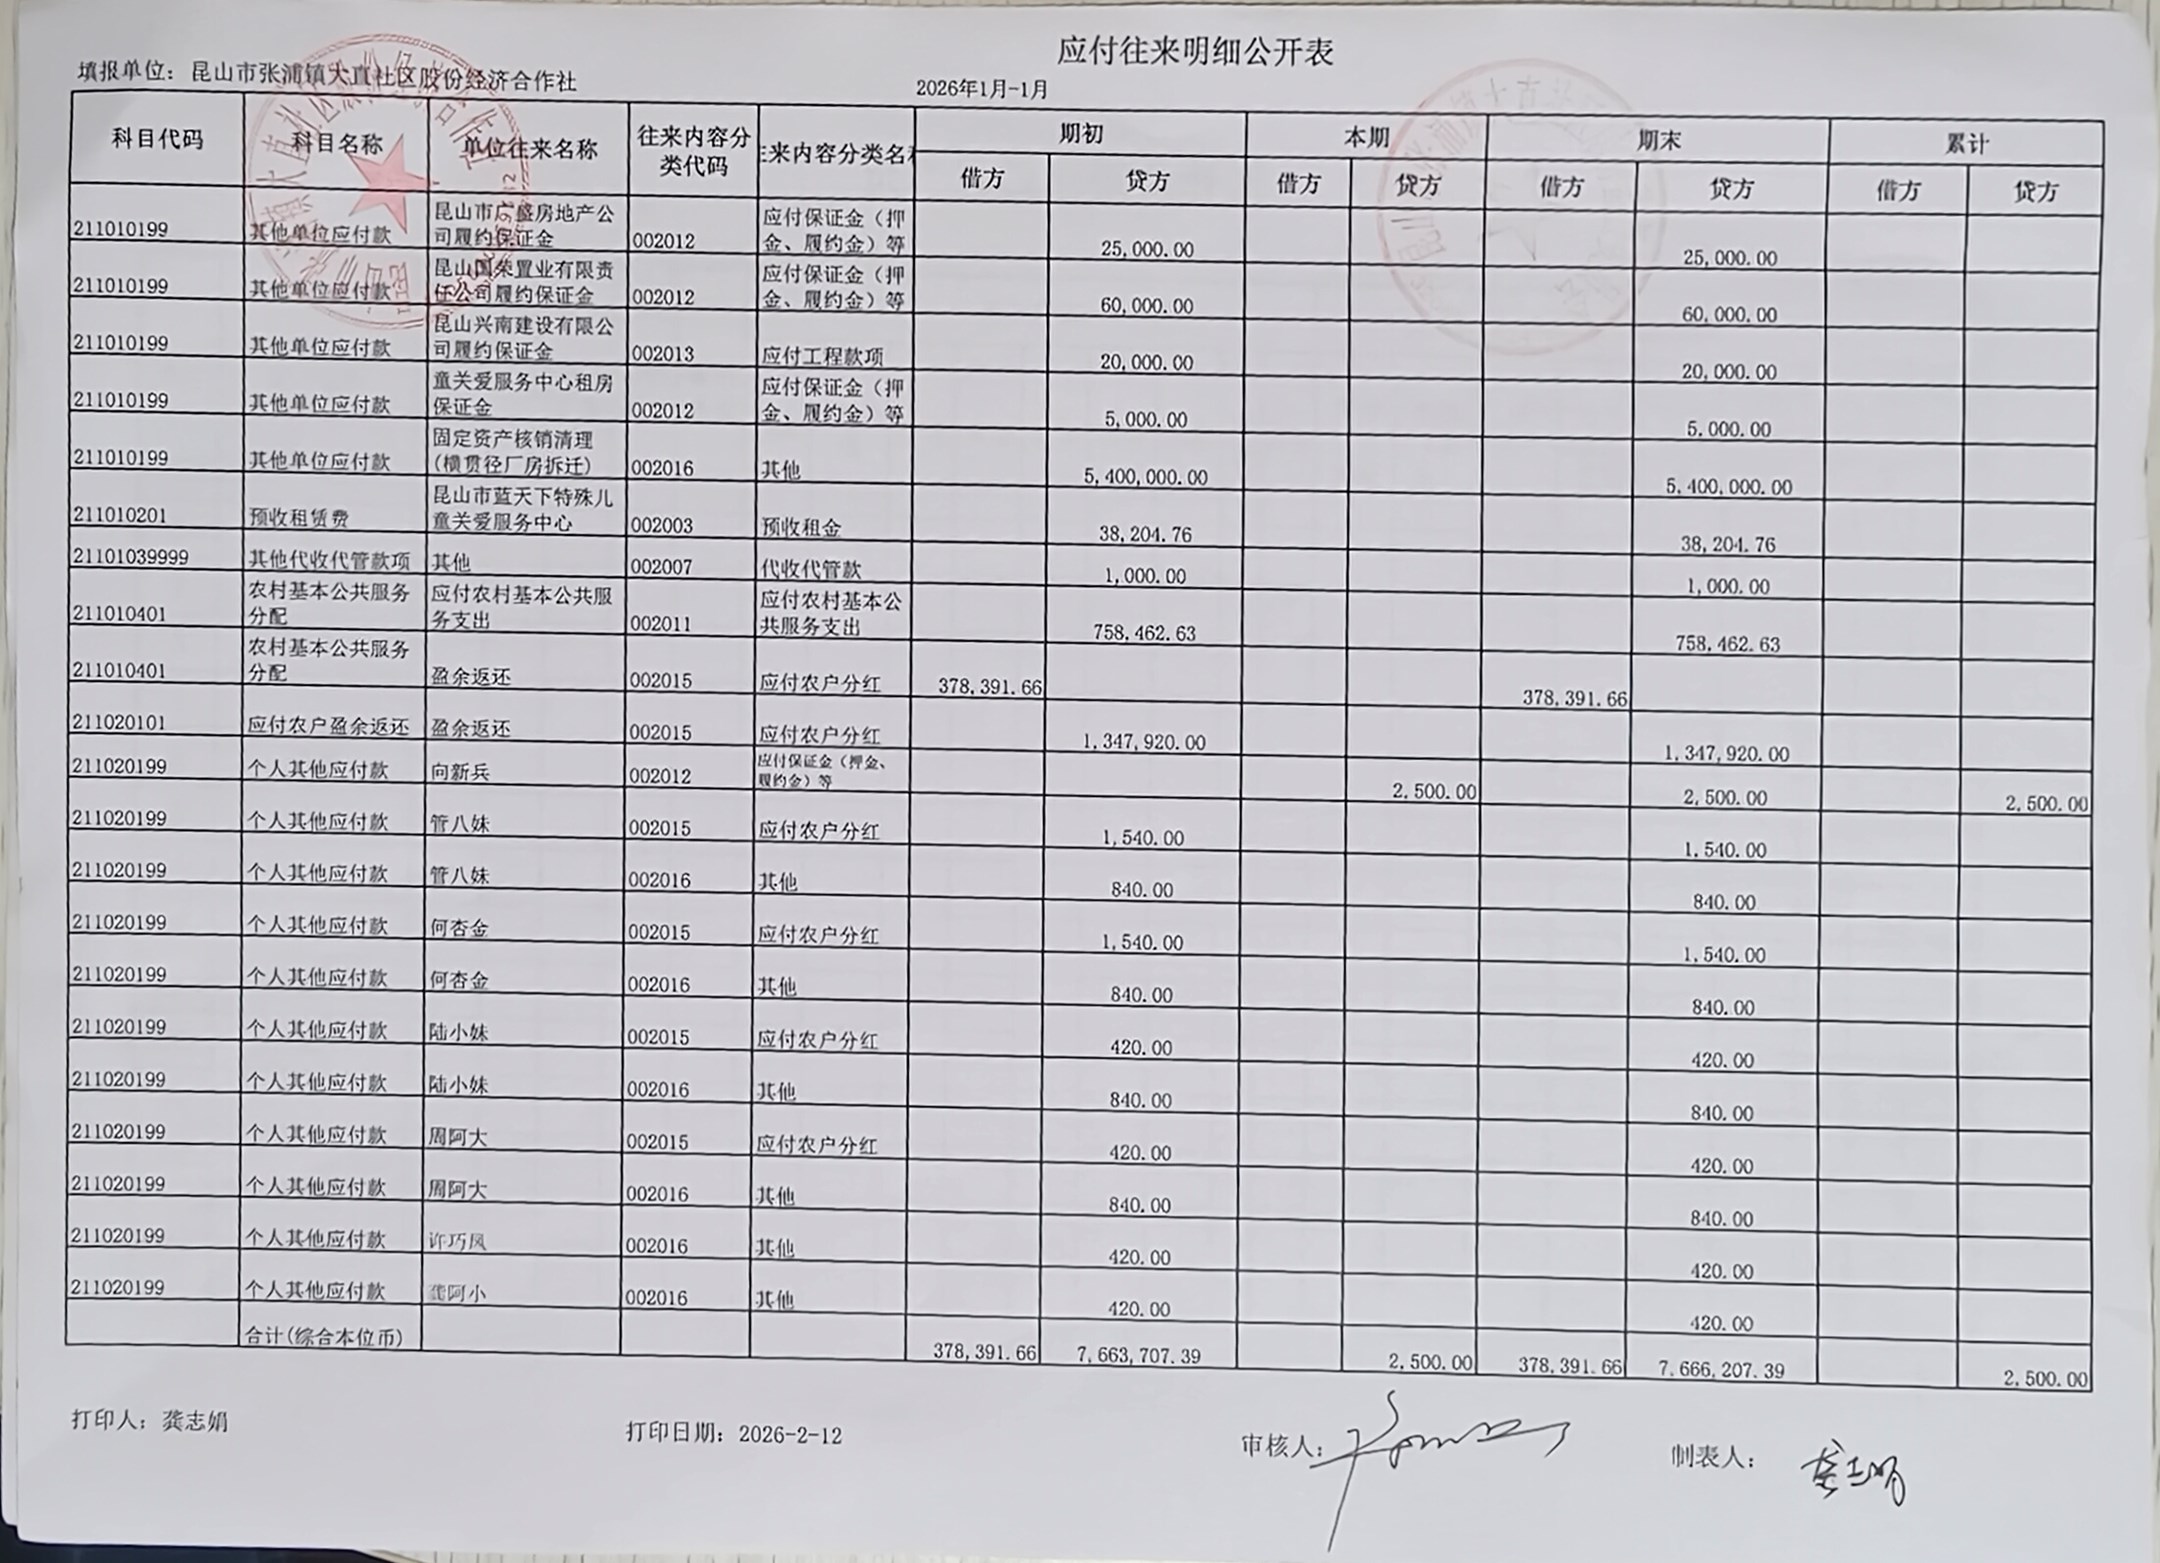 应付往来明细公开表
填报单位：昆山市张浦镇大直社区股份经济合作社
2026年1月-1月
科目代码 科目名称 单位往来名称 往来内容分类代码 来内容分类名 期初 本期 期末 累计
借方 贷方 借方 贷方 借方 贷方 借方 贷方
211010199 其他单位应付款 昆山市广盛房地产公司履约保证金 002012 应付保证金（押金、履约金）等 25,000.00 25,000.00
211010199 其他单位应付款 昆山国荣置业有限责任公司履约保证金 002012 应付保证金（押金、履约金）等 60,000.00 60,000.00
211010199 其他单位应付款 昆山兴南建设有限公司履约保证金 002013 应付工程款项 20,000.00 20,000.00
211010199 其他单位应付款 童关爱服务中心租房保证金 002012 应付保证金（押金、履约金）等 5,000.00 5,000.00
211010199 其他单位应付款 固定资产核销清理(横贯径厂房拆迁) 002016 其他 5,400,000.00 5,400,000.00
211010201 预收租赁费 昆山市蓝天下特殊儿童关爱服务中心 002003 预收租金 38,204.76 38,204.76
21101039999 其他代收代管款项 其他 002007 代收代管款 1,000.00 1,000.00
211010401 农村基本公共服务分配 应付农村基本公共服务支出 002011 应付农村基本公共服务支出 758,462.63 758,462.63
211010401 农村基本公共服务分配 盈余返还 002015 应付农户分红 378,391.66 378,391.66
211020101 应付农户盈余返还 盈余返还 002015 应付农户分红 1,347,920.00 1,347,920.00
211020199 个人其他应付款 向新兵 002012 应付保证金（押金、履约金）等 2,500.00 2,500.00 2,500.00
211020199 个人其他应付款 管八妹 002015 应付农户分红 1,540.00 1,540.00
211020199 个人其他应付款 管八妹 002016 其他 840.00 840.00
211020199 个人其他应付款 何杏金 002015 应付农户分红 1,540.00 1,540.00
211020199 个人其他应付款 何杏金 002016 其他 840.00 840.00
211020199 个人其他应付款 陆小妹 002015 应付农户分红 420.00 420.00
211020199 个人其他应付款 陆小妹 002016 其他 840.00 840.00
211020199 个人其他应付款 周阿大 002015 应付农户分红 420.00 420.00
211020199 个人其他应付款 周阿大 002016 其他 840.00 840.00
211020199 个人其他应付款 许巧凤 002016 其他 420.00 420.00
211020199 个人其他应付款 龚阿小 002016 其他 420.00 420.00
合计(综合本位币) 378,391.66 7,663,707.39 2,500.00 378,391.66 7,666,207.39 2,500.00
打印人：龚志娟 打印日期：2026-2-12 审核人： 制表人：龚志娟